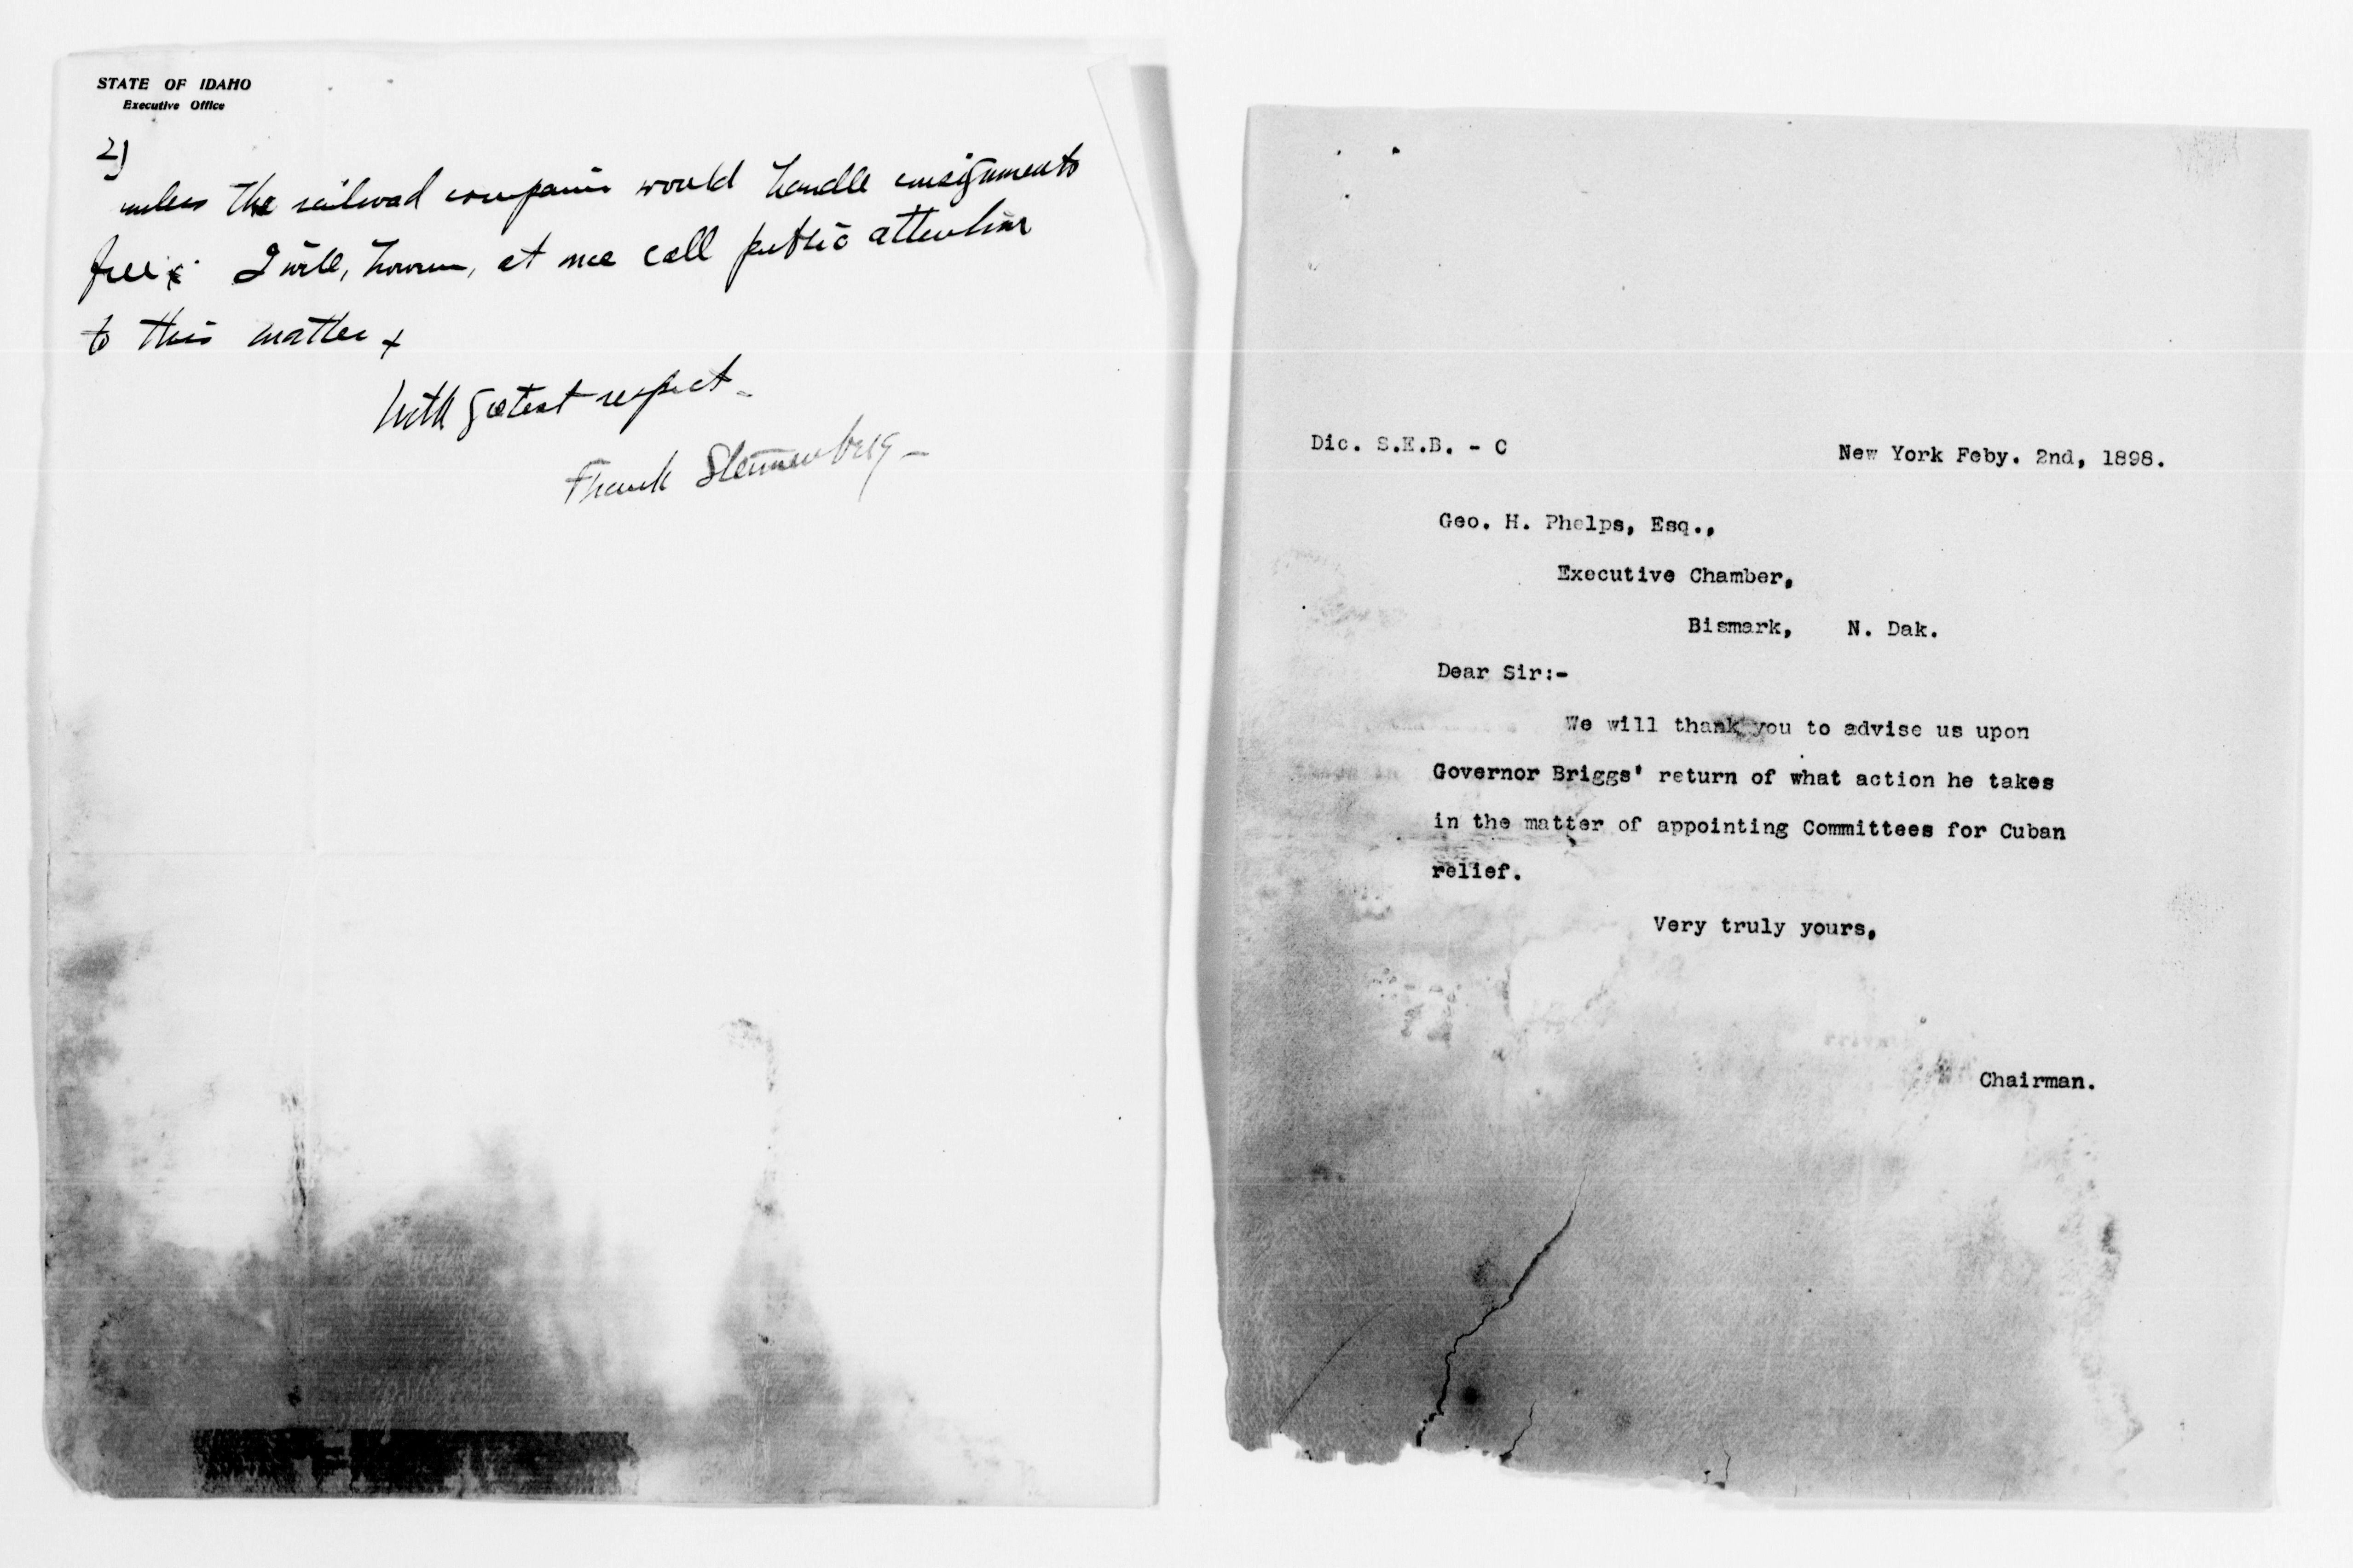 STATE OF IDAHO
Executive Office
2)
unless the railroad companies would handle consignments
free. I will, however, at once call public attention
to this matter
With greatest respect.
Frank Steunenberg
Dic. S.E.B. - C
New York Feby. 2nd, 1898.
Geo. H. Phelps, Esq.,
Executive Chamber,
Bismark, N. Dak.
Dear Sir:-
We will thank you to advise us upon
Governor Briggs' return of what action he takes
in the matter of appointing Committees for Cuban
relief.
Very truly yours,
Chairman.